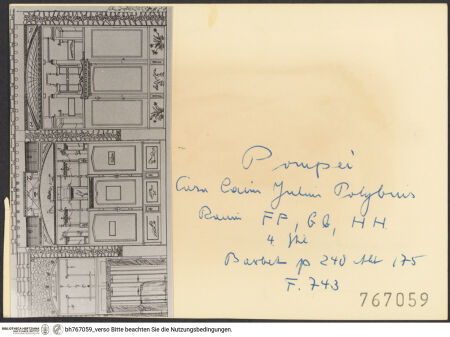 Pompei
Casa Caius Julius Polybius
Raum FF, GG, HH
4 Jhe
Barbet p 240 Abt 175
F. 743
767059
bh767059_verso Bitte beachten Sie die Nutzungsbedingungen.